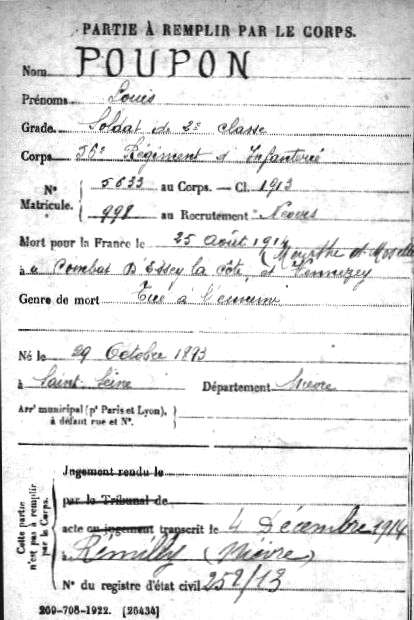 PARTIE À REMPLIR PAR LE CORPS.
Nom POUPON
Prénoms Louis
Grade Soldat de 2e classe
Corps 56e Régiment d'Infanterie
N° Matricule. { 5633 au Corps. — Cl. 1913
998 au Recrutement Nevers
Mort pour la France le 25 Août 1914
(Meurthe et Moselle
à Combat D'Essey la côte, et Vennezey
Genre de mort Tué à l'ennemi
Né le 29 Octobre 1893
à Saint-Seine Département Nièvre
Arr' municipal (p' Paris et Lyon),
à défaut rue et N°.
Cette partie n'est pas à remplir par le Corps.
Jugement rendu le
par le Tribunal de
acte ou jugement transcrit le 4 Décembre 1914
à Rémilly (Nièvre)
N° du registre d'état civil 252/13
269-708-1922. [26434]